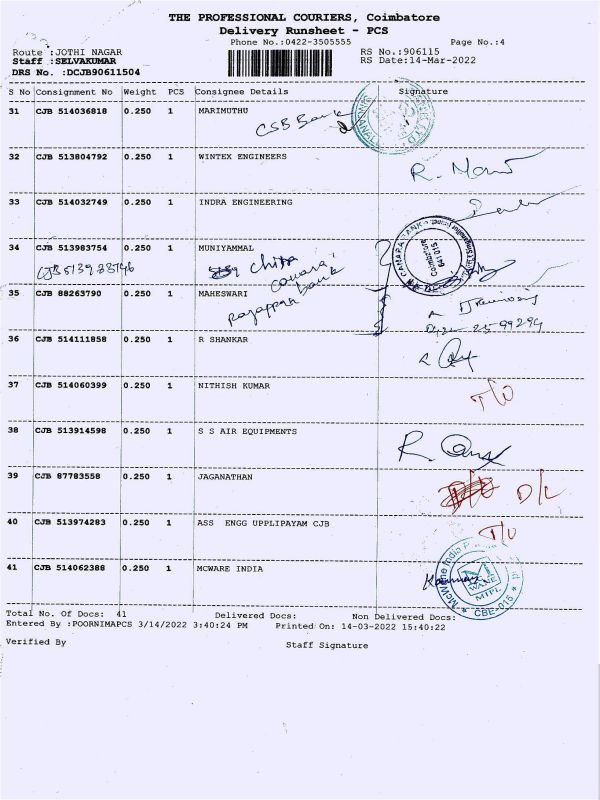 THE PROFESSIONAL COURIERS, Coimbatore
Delivery Runsheet - PCS
Phone No.:0422-3505555 Page No.:4
Route :JOTHI NAGAR RS No.:906115
Staff :SELVAKUMAR RS Date:14-Mar-2022
DRS No. :DCJB90611504
S No Consignment No Weight PCS Consignee Details Signature
31 CJB 514036818 0.250 1 MARIMUTHU
CSB Bank
32 CJB 513804792 0.250 1 WINTEX ENGINEERS
33 CJB 514032749 0.250 1 INDRA ENGINEERING
34 CJB 513983754 0.250 1 MUNIYAMMAL
CANARA BANK
Coimbatore
641 015
35 CJB 88263790 0.250 1 MAHESWARI
bank
36 CJB 514111858 0.250 1 R SHANKAR
37 CJB 514060399 0.250 1 NITHISH KUMAR
38 CJB 513914598 0.250 1 S S AIR EQUIPMENTS
39 CJB 87783558 0.250 1 JAGANATHAN
D/L
40 CJB 513974283 0.250 1 ASS ENGG UPPLIPAYAM CJB
41 CJB 514062388 0.250 1 MCWARE INDIA
McWane India
WANE
MIPL
CBE-015
Total No. Of Docs: 41 Delivered Docs: Non Delivered Docs:
Entered By :POORNIMAPCS 3/14/2022 3:40:24 PM Printed On: 14-03-2022 15:40:22
Verified By Staff Signature